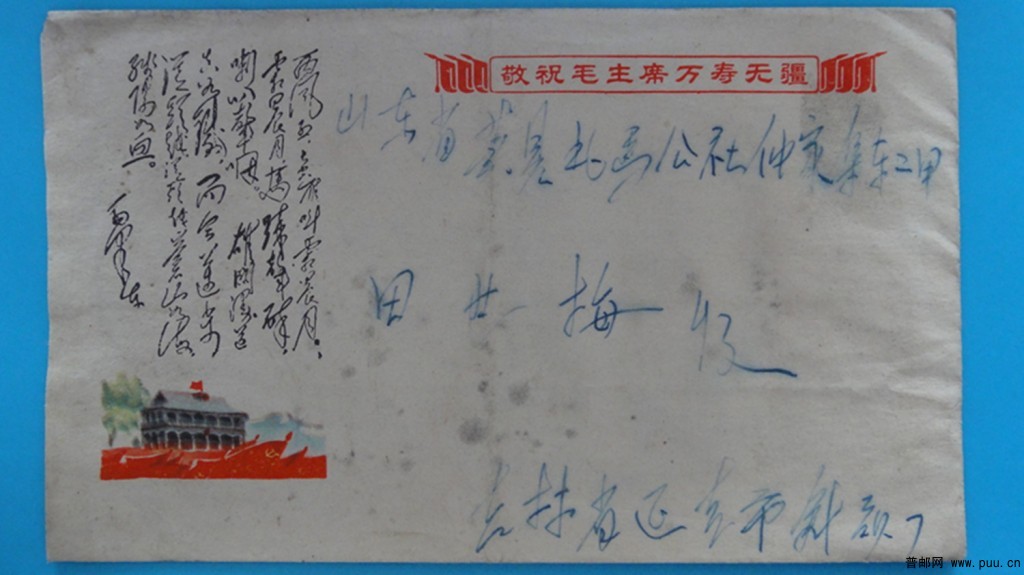 敬祝毛主席万寿无疆
西风烈,长空雁叫霜晨月。
霜晨月,马蹄声碎,
喇叭声咽。雄关漫道
真如铁,而今迈步
从头越。从头越,苍山如海,
残阳如血。
毛泽东
山东省 县 公社仲家 东二甲
田 梅 收
吉林省延吉市
普邮网 www.puu.cn